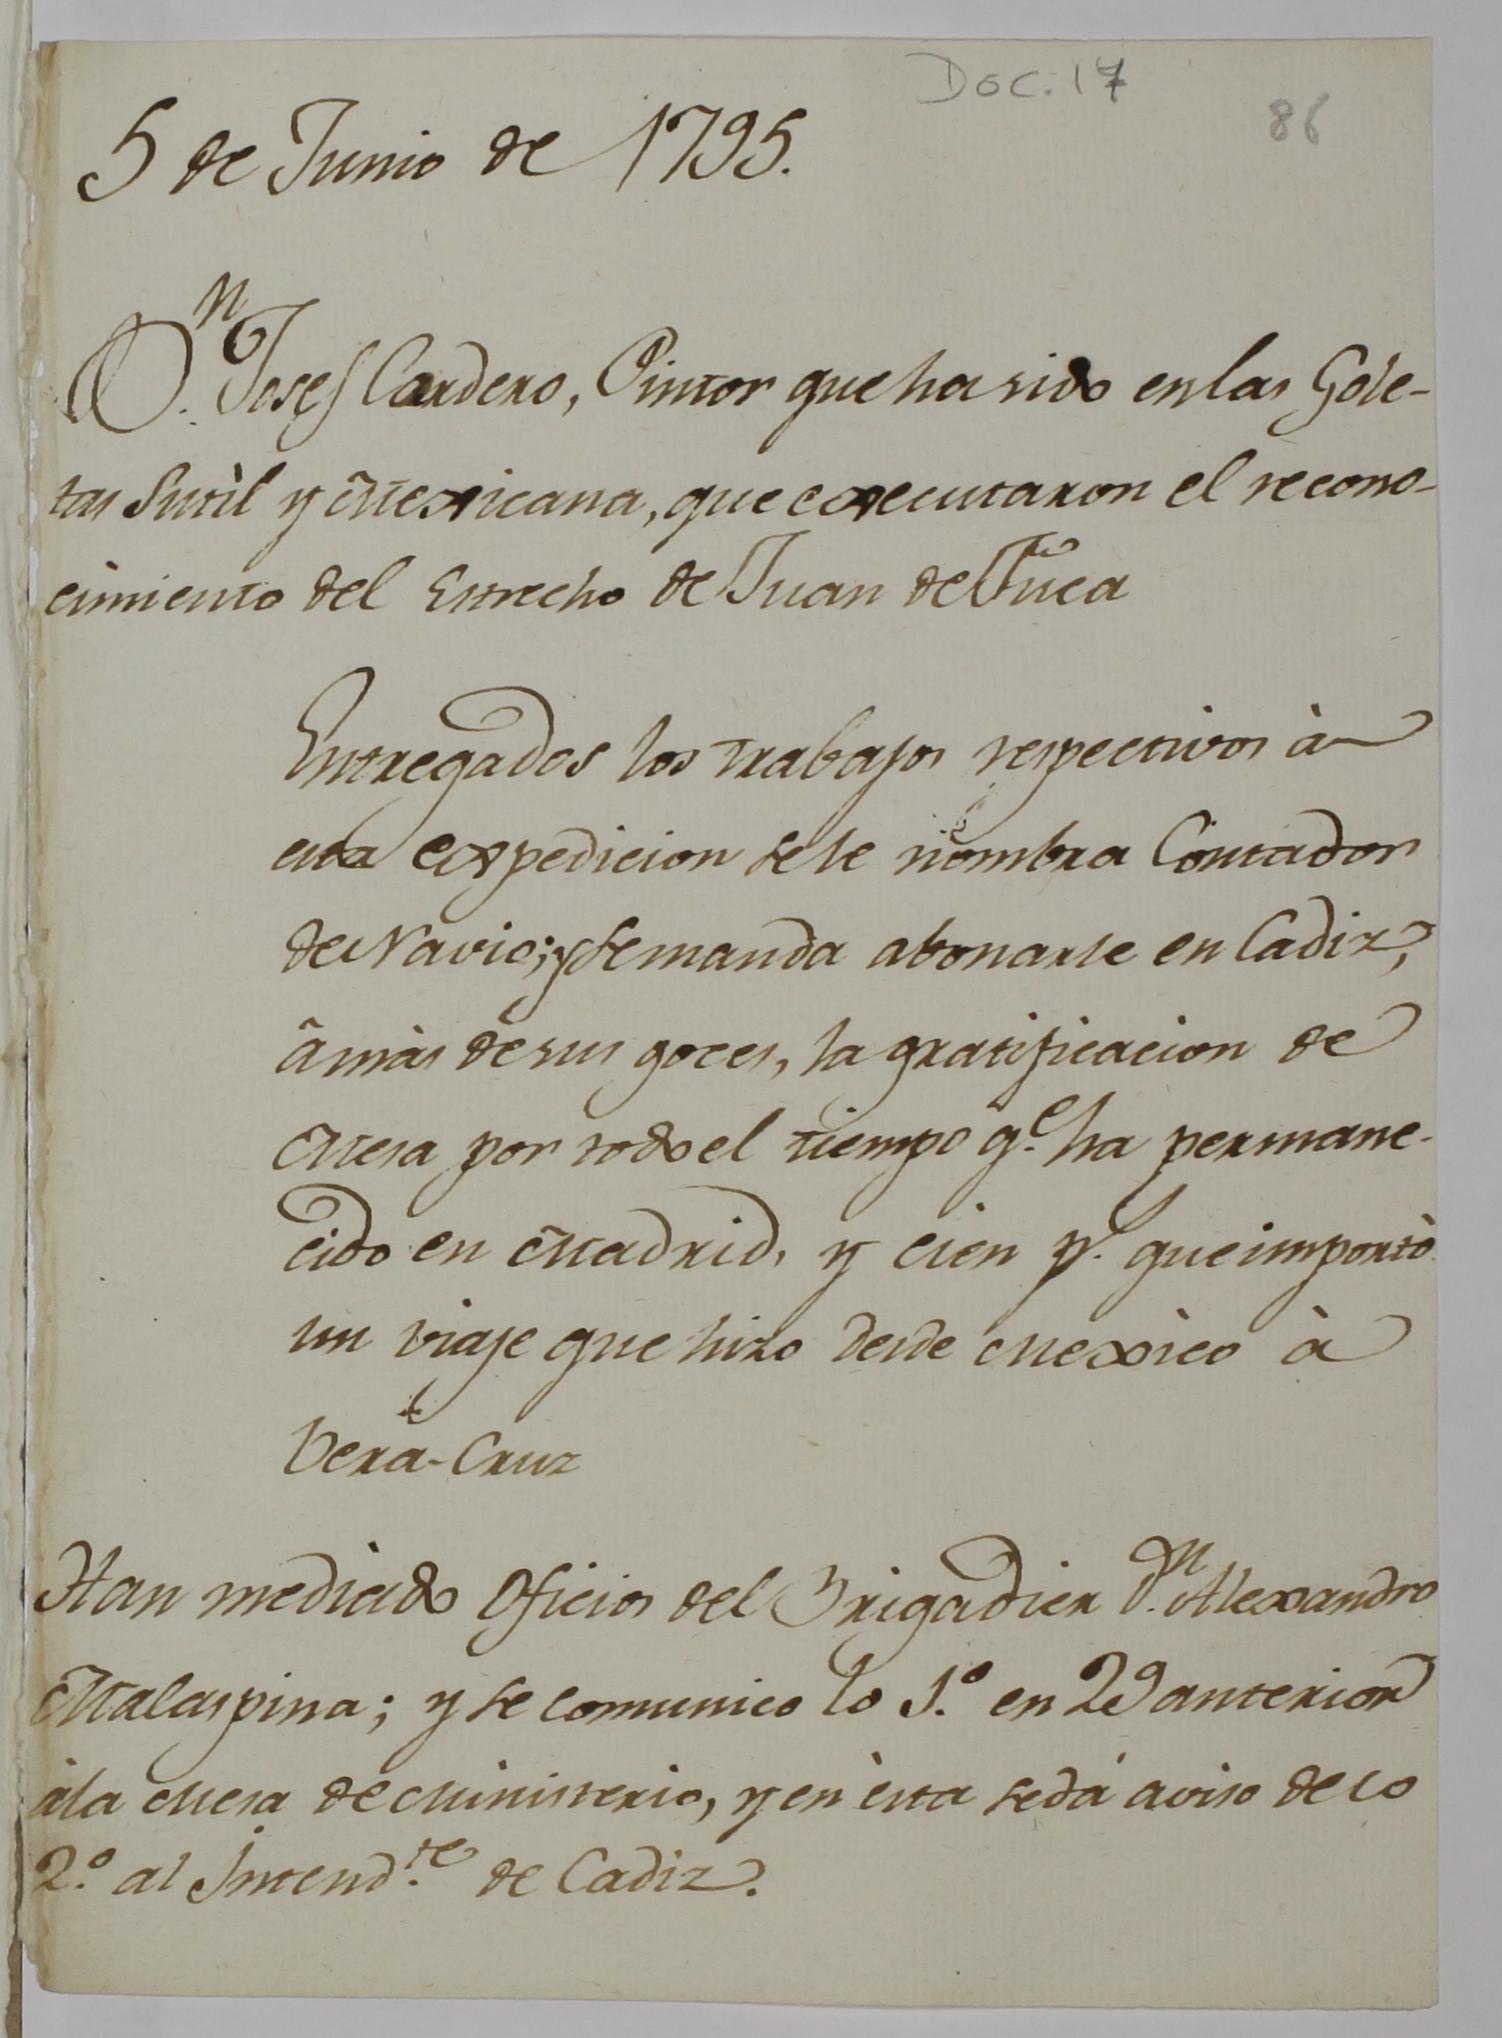 Doc. 17
86
5 de Junio de 1795.
D.n Josef Cardero, Pintor que ha sido en las Gole-
tas Sutìl y Mexicana, que executaron el recono-
cimiento del Estrecho de Juan de Fuca
Entregados los trabajos respectivos à
esta expedicion se le nombra Contador
de Navio; y se manda abonarle en Cadiz,
à màs de sus goces, la gratificacion de
Mesa por todo el tiempo q.e ha permane-
cido en Madrid, y cien p.s que importò
un viaje que hizo desde Mexico à
Vera-Cruz
Han mediado Oficios del Brigadier D.n Alexandro
Malaspina; y se comunico lo 1.º en 29 anterior
à la Mesa de Ministerio, y en èsta se dá aviso de lo
2.º al Intend.te de Cadiz.